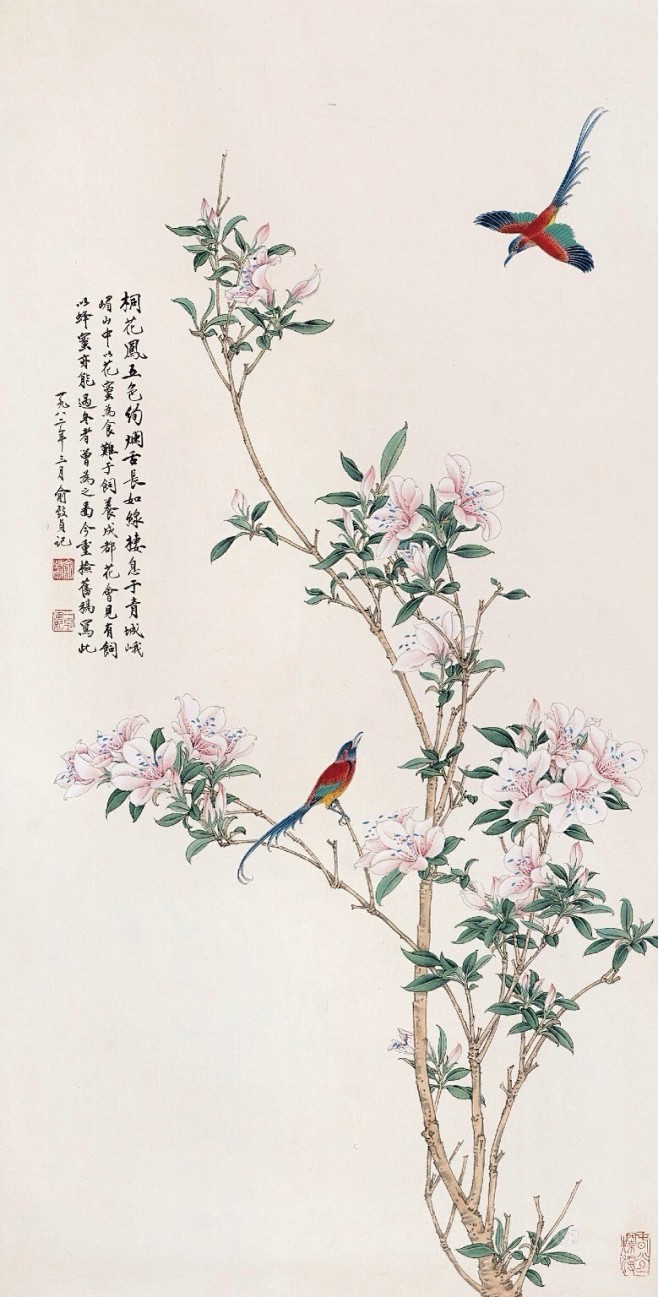 桐花鳳五色絢爛舌長如線棲息于青城峨
嵋山中以花蜜為食難于飼養成都花會見有飼
以蜂蜜亦能過冬者曾為之圖今重撿舊稿寫此
一九八二年三月俞致貞記